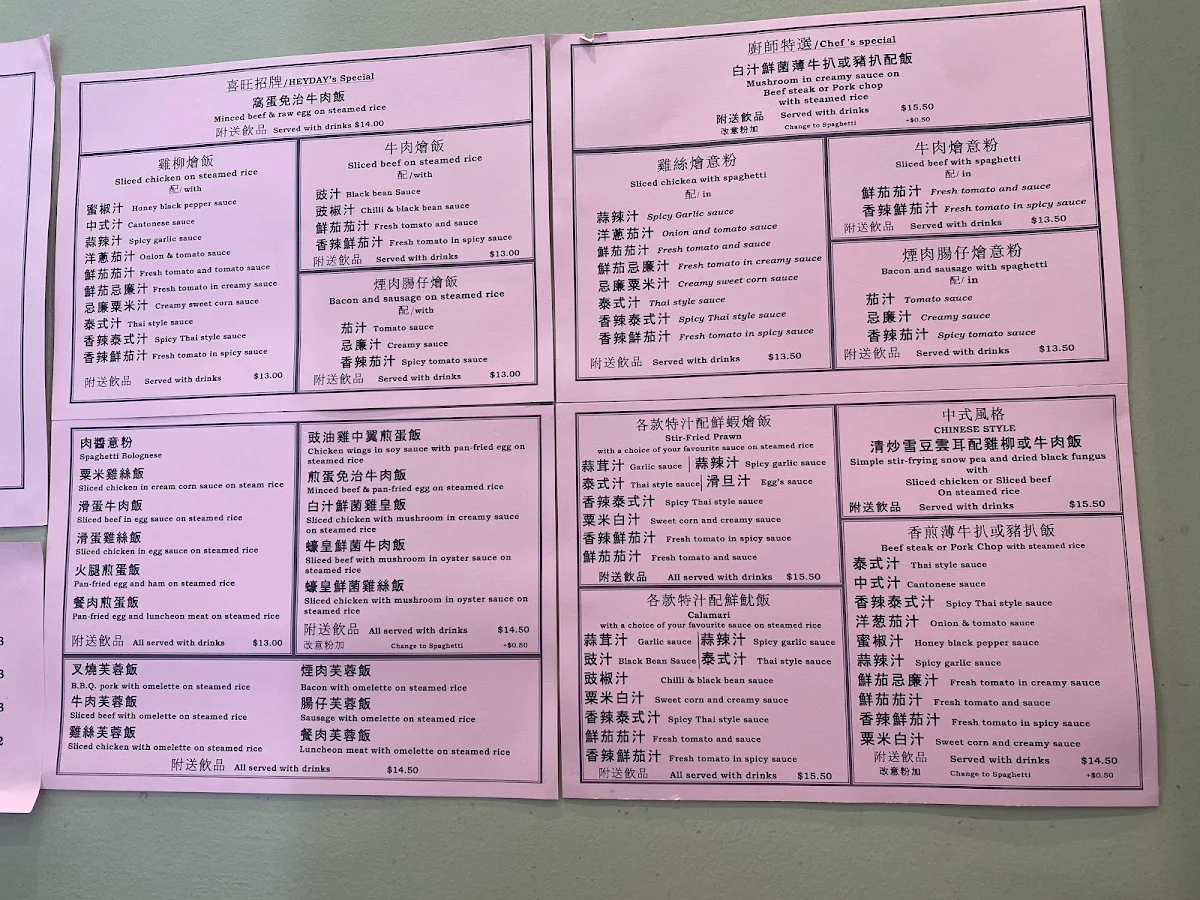 喜旺招牌/HEYDAY's Special
窩蛋免治牛肉飯
Minced beef & raw egg on steamed rice
附送飲品 Served with drinks $14.00
雞柳燴飯
Sliced chicken on steamed rice
配/with
蜜椒汁 Honey black pepper sauce
中式汁 Cantonese sauce
蒜辣汁 Spicy garlic sauce
洋蔥茄汁 Onion & tomato sauce
鮮茄茄汁 Fresh tomato and tomato sauce
鮮茄忌廉汁 Fresh tomato in creamy sauce
忌廉粟米汁 Creamy sweet corn sauce
泰式汁 Thai style sauce
香辣泰式汁 Spicy Thai style sauce
香辣鮮茄汁 Fresh tomato in spicy sauce
附送飲品 Served with drinks $13.00
牛肉燴飯
Sliced beef on steamed rice
配/with
豉汁 Black bean Sauce
豉椒汁 Chilli & black bean sauce
鮮茄茄汁 Fresh tomato and sauce
香辣鮮茄汁 Fresh tomato in spicy sauce
附送飲品 Served with drinks $13.00
煙肉腸仔燴飯
Bacon and sausage on steamed rice
配/with
茄汁 Tomato sauce
忌廉汁 Creamy sauce
香辣茄汁 Spicy tomato sauce
附送飲品 Served with drinks $13.00
廚師特選/Chef 's special
白汁鮮菌薄牛扒或豬扒配飯
Mushroom in creamy sauce on
Beef steak or Pork chop
with steamed rice
附送飲品 Served with drinks $15.50
改意粉加 Change to Spaghetti +$0.50
雞絲燴意粉
Sliced chicken with spaghetti
配/ in
蒜辣汁 Spicy Garlic sauce
洋蔥茄汁 Onion and tomato sauce
鮮茄茄汁 Fresh tomato and sauce
鮮茄忌廉汁 Fresh tomato in creamy sauce
忌廉粟米汁 Creamy sweet corn sauce
泰式汁 Thai style sauce
香辣泰式汁 Spicy Thai style sauce
香辣鮮茄汁 Fresh tomato in spicy sauce
附送飲品 Served with drinks $13.50
牛肉燴意粉
Sliced beef with spaghetti
配/ in
鮮茄茄汁 Fresh tomato and sauce
香辣鮮茄汁 Fresh tomato in spicy sauce
附送飲品 Served with drinks $13.50
煙肉腸仔燴意粉
Bacon and sausage with spaghetti
配/ in
茄汁 Tomato sauce
忌廉汁 Creamy sauce
香辣茄汁 Spicy tomato sauce
附送飲品 Served with drinks $13.50
肉醬意粉
Spaghetti Bolognese
粟米雞絲飯
Sliced chicken in cream corn sauce on steam rice
滑蛋牛肉飯
Sliced beef in egg sauce on steamed rice
滑蛋雞絲飯
Sliced chicken in egg sauce on steamed rice
火腿煎蛋飯
Pan-fried egg and ham on steamed rice
餐肉煎蛋飯
Pan-fried egg and luncheon meat on steamed rice
附送飲品 All served with drinks $13.00
豉油雞中翼煎蛋飯
Chicken wings in soy sauce with pan-fried egg on
steamed rice
煎蛋免治牛肉飯
Minced beef & pan-fried egg on steamed rice
白汁鮮菌雞皇飯
Sliced chicken with mushroom in creamy sauce
on steamed rice
蠔皇鮮菌牛肉飯
Sliced beef with mushroom in oyster sauce on
steamed rice
蠔皇鮮菌雞絲飯
Sliced chicken with mushroom in oyster sauce on
steamed rice
附送飲品 All served with drinks $14.50
改意粉加 Change to Spaghetti +$0.50
叉燒芙蓉飯
B.B.Q. pork with omelette on steamed rice
牛肉芙蓉飯
Sliced beef with omelette on steamed rice
雞絲芙蓉飯
Sliced chicken with omelette on steamed rice
煙肉芙蓉飯
Bacon with omelette on steamed rice
腸仔芙蓉飯
Sausage with omelette on steamed rice
餐肉芙蓉飯
Luncheon meat with omelette on steamed rice
附送飲品 All served with drinks $14.50
各款特汁配鮮蝦燴飯
Stir-Fried Prawn
with a choice of your favourite sauce on steamed rice
蒜茸汁 Garlic sauce 蒜辣汁 Spicy garlic sauce
泰式汁 Thai style sauce 滑旦汁 Egg's sauce
香辣泰式汁 Spicy Thai style sauce
粟米白汁 Sweet corn and creamy sauce
香辣鮮茄汁 Fresh tomato in spicy sauce
鮮茄茄汁 Fresh tomato and sauce
附送飲品 All served with drinks $15.50
各款特汁配鮮魷飯
Calamari
with a choice of your favourite sauce on steamed rice
蒜茸汁 Garlic sauce 蒜辣汁 Spicy garlic sauce
豉汁 Black Bean Sauce 泰式汁 Thai style sauce
豉椒汁 Chilli & black bean sauce
粟米白汁 Sweet corn and creamy sauce
香辣泰式汁 Spicy Thai style sauce
鮮茄茄汁 Fresh tomato and sauce
香辣鮮茄汁 Fresh tomato in spicy sauce
附送飲品 All served with drinks $15.50
中式風格
CHINESE STYLE
清炒雪豆雲耳配雞柳或牛肉飯
Simple stir-frying snow pea and dried black fungus
with
Sliced chicken or Sliced beef
On steamed rice
附送飲品 Served with drinks $15.50
香煎薄牛扒或豬扒飯
Beef steak or Pork Chop with steamed rice
泰式汁 Thai style sauce
中式汁 Cantonese sauce
香辣泰式汁 Spicy Thai style sauce
洋葱茄汁 Onion & tomato sauce
蜜椒汁 Honey black pepper sauce
蒜辣汁 Spicy garlic sauce
鮮茄忌廉汁 Fresh tomato in creamy sauce
鮮茄茄汁 Fresh tomato and sauce
香辣鮮茄汁 Fresh tomato in spicy sauce
粟米白汁 Sweet corn and creamy sauce
附送飲品 Served with drinks $14.50
改意粉加 Change to Spaghetti +$0.50